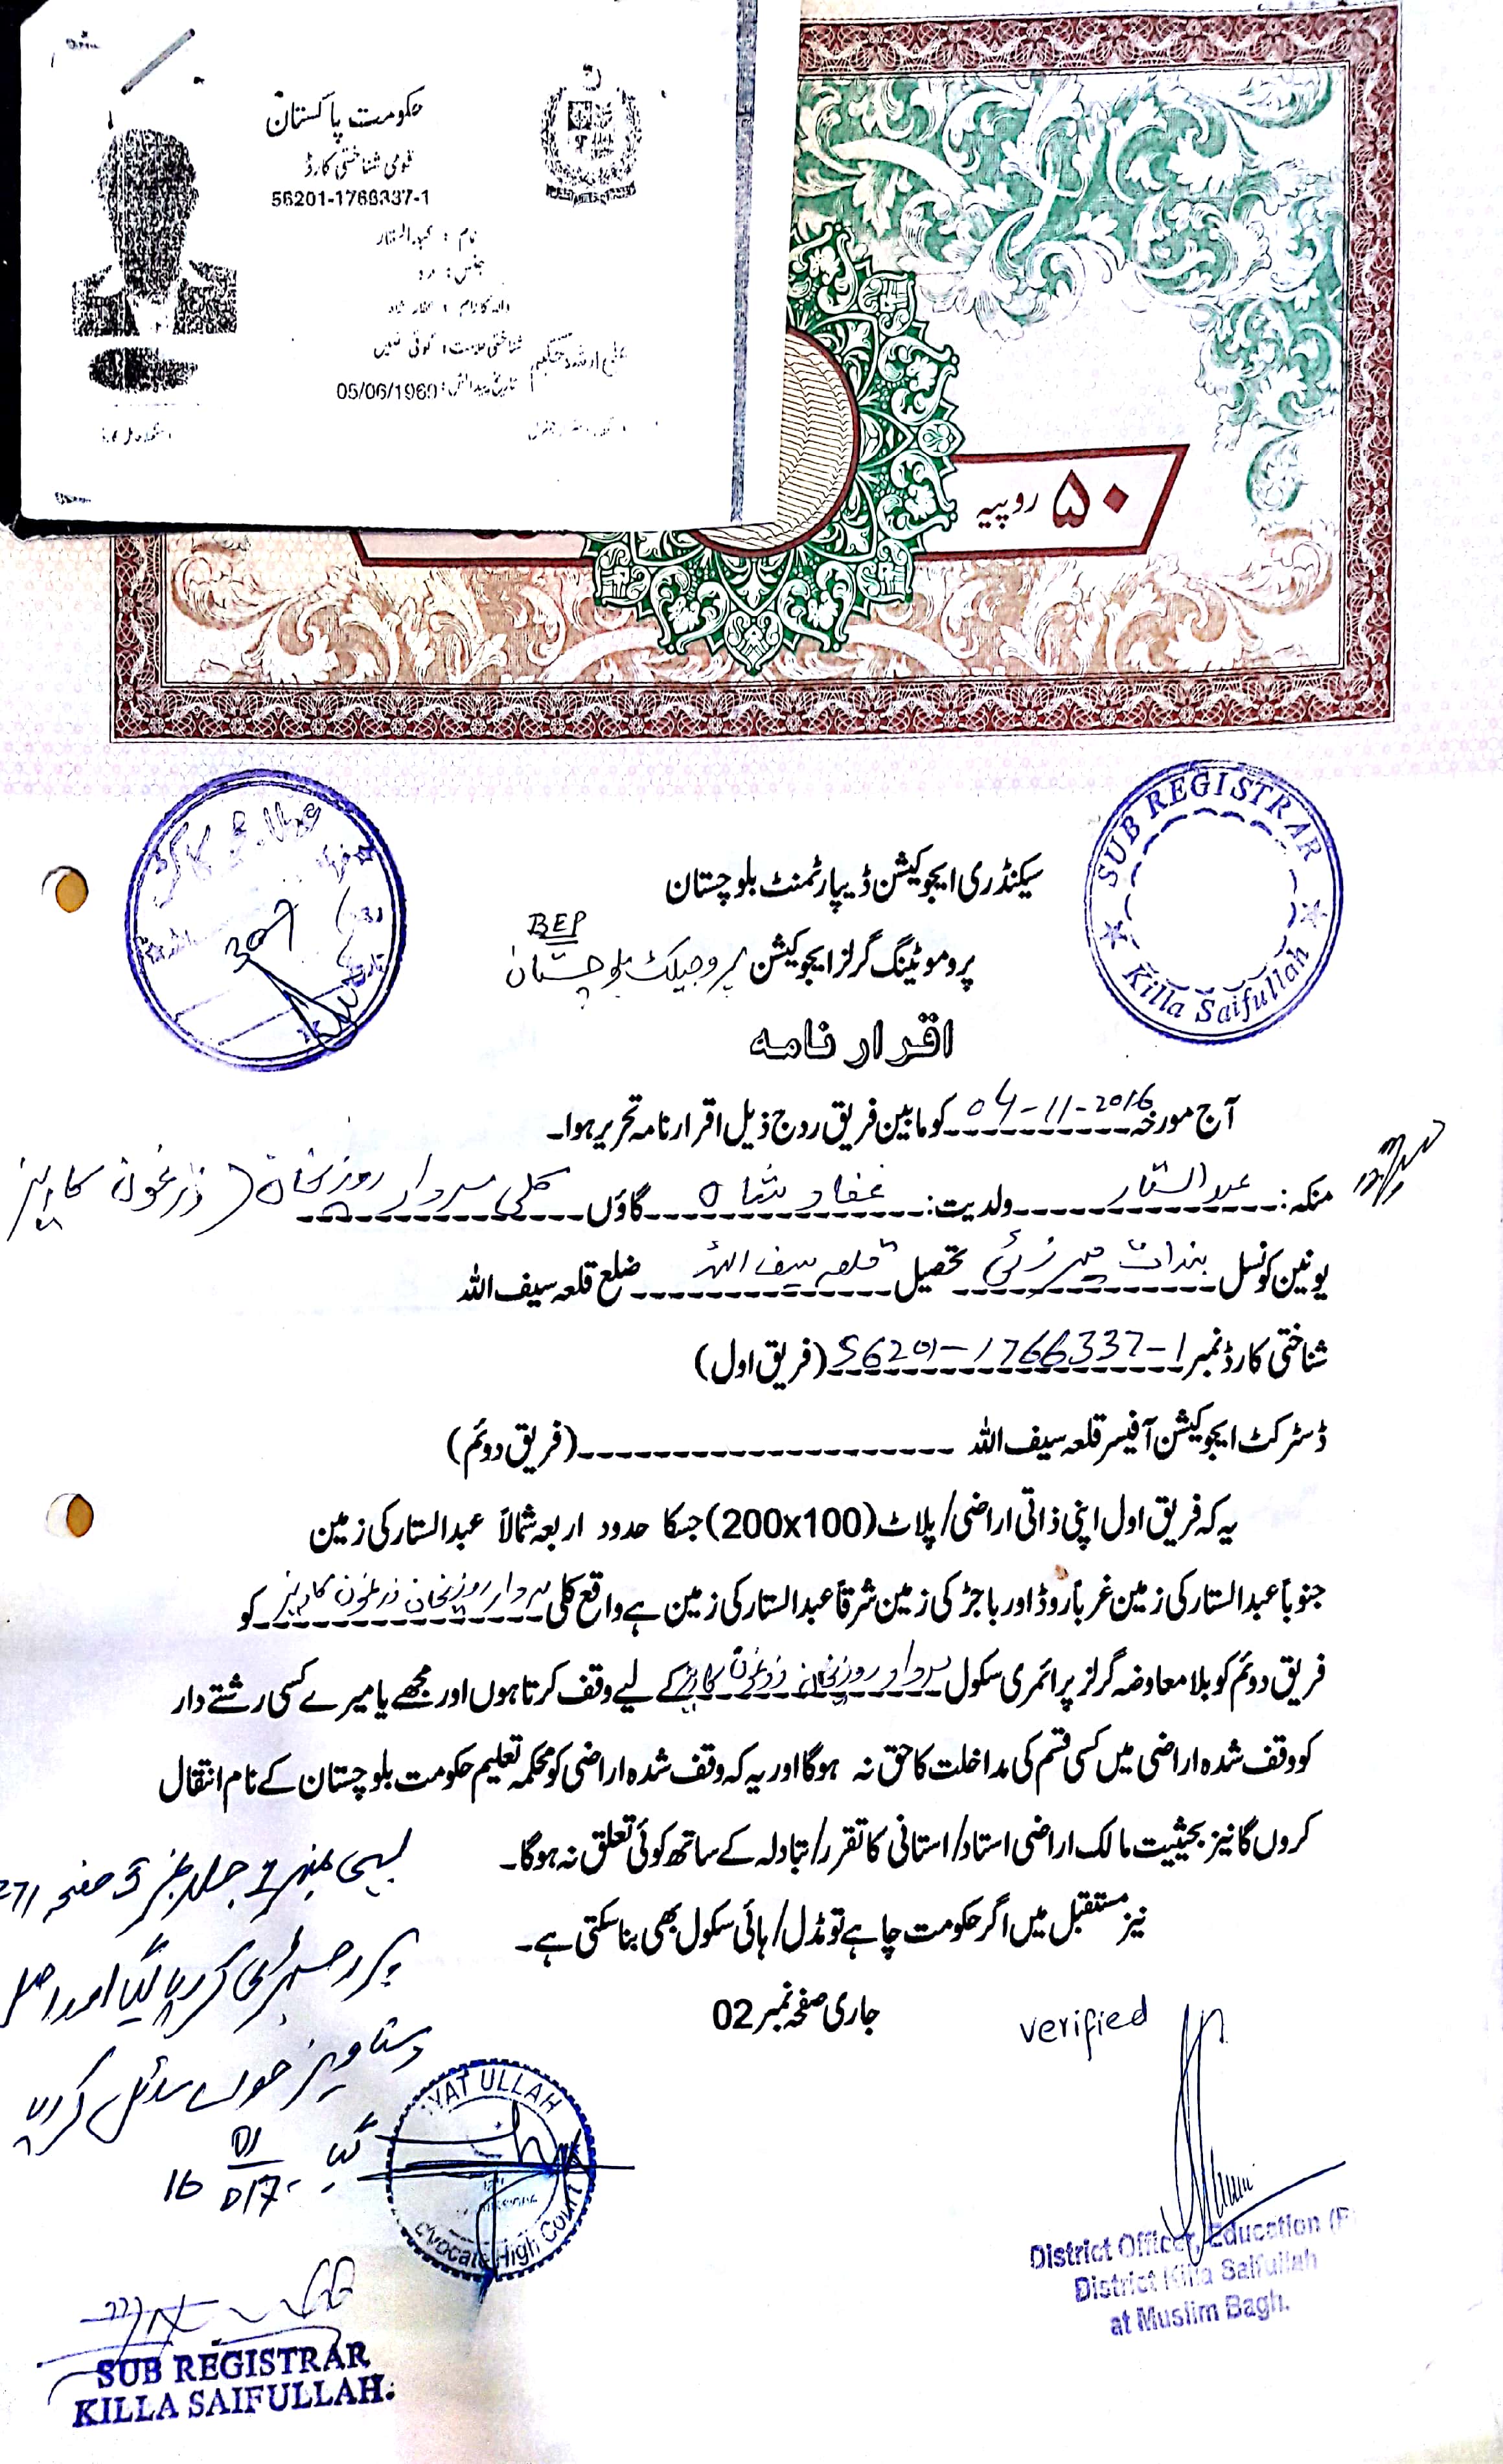 حکومت پاکستان
قومی شناختی کارڈ
56201-1766337-1
نام : عبدالستار
جنس : مرد
شناختی علامت : کوئی نہیں
05/06/1960 تاریخ پیدائش
۵۰ روپیہ
SUB REGISTRAR
Killa Saifullah
307
سیکنڈری ایجوکیشن ڈیپارٹمنٹ بلوچستان
BEP
پروموٹینگ گرلز ایجوکیشن پروجیکٹ بلوچستان
اقرار نامہ
آج مورخہ 04-11-2016 کو مابین فریق روج ذیل اقرار نامہ تحریر ہوا۔
منکہ: عبدالستار ولدیت: غفار شاہ گاؤں کلی سردار روزیخان زرغون کاریز
یونین کونسل بندات میرزئی تحصیل قلعہ سیف اللہ ضلع قلعہ سیف اللہ
شناختی کارڈ نمبر 56201-1766337-1 (فریق اول)
ڈسٹرکٹ ایجوکیشن آفیسر قلعہ سیف اللہ (فریق دوئم)
یہ کہ فریق اول اپنی ذاتی اراضی/ پلاٹ (200x100) جسکا حدود اربعہ شمالاً عبدالستار کی زمین
جنوباً عبدالستار کی زمین غرباً روڈ اور باجڑ کی زمین شرقاً عبدالستار کی زمین ہے واقع کلی سردار روزیخان زرغون کاریز کو
فریق دوئم کو بلا معاوضہ گرلز پرائمری سکول سردار روزیخان زرغون کاریز کے لیے وقف کرتا ہوں اور مجھے یا میرے کسی رشتے دار
کو وقف شدہ اراضی میں کسی قسم کی مداخلت کا حق نہ ہوگا اور یہ کہ وقف شدہ اراضی کو محکمہ تعلیم حکومت بلوچستان کے نام انتقال
کروں گا نیز بحیثیت مالک اراضی استاد/ استانی کا تقرر/ تبادلہ کے ساتھ کوئی تعلق نہ ہوگا۔
نیز مستقبل میں اگر حکومت چاہے تو مڈل/ ہائی سکول بھی بنا سکتی ہے۔
جاری صفحہ نمبر 02
بہی نمبر 1 جلد نمبر 3 صفحہ 271
پر رجسٹری کر دیا گیا اور اصل
دستاویز حوالے سائل کر دیا
گیا
verified
District Officer, Education
District Killa Saifullah
at Muslim Bagh.
ULLAH
Advocate High Court
SUB REGISTRAR
KILLA SAIFULLAH.